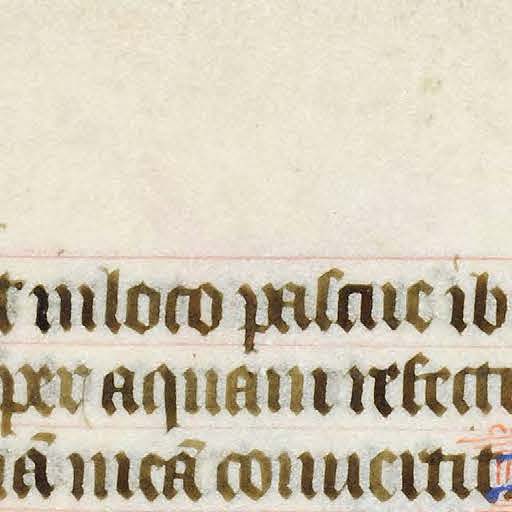 t in loco pascue ib
per aquam refecti
mā meā conuertit